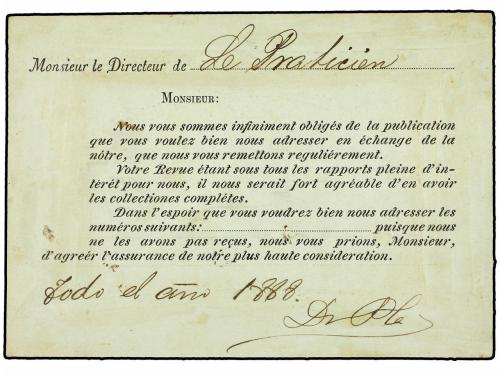 Monsieur le Directeur de Le Praticien
MONSIEUR:
Nous vous sommes infiniment obligés de la publication
que vous voulez bien nous adresser en échange de la
nôtre, que nous vous remettons reguliérement.
Votre Revue étant sous tous les rapports pleine d'in-
térêt pour nous, il nous serait fort agréable d'en avoir
les collectiones complètes.
Dans l'espoir que vous voudrez bien nous adresser les
numéros suivants: puisque nous
ne les avons pas reçus, nous vous prions, Monsieur,
d'agreér l'assurance de notre plus haute consideration.
Todo el año 1888.
Dr